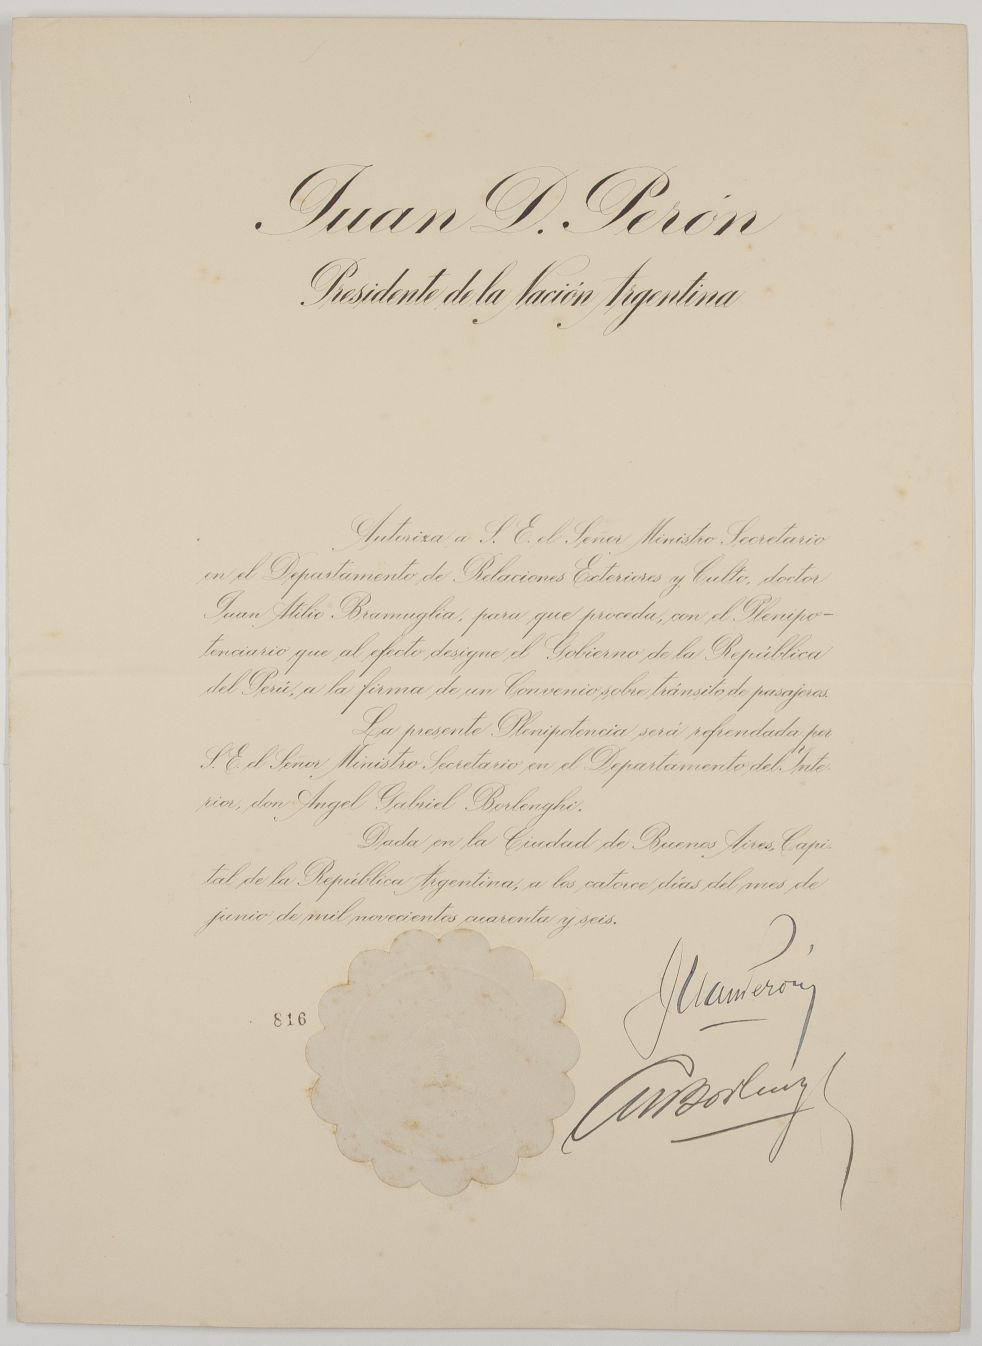 Juan D. Perón
Presidente de la Nación Argentina
Autoriza a S. E. el Señor Ministro Secretario
en el Departamento de Relaciones Exteriores y Culto, doctor
Juan Atilio Bramuglia, para que proceda, con el Plenipo-
tenciario que al efecto designe el Gobierno de la República
del Perú, a la firma de un Convenio sobre tránsito de pasajeros.
La presente Plenipotencia será refrendada por
S. E. el Señor Ministro Secretario en el Departamento del Inte-
rior, don Angel Gabriel Borlenghi.
Dada en la Ciudad de Buenos Aires, Capi-
tal de la República Argentina, a los catorce días del mes de
junio de mil novecientos cuarenta y seis.
Juan Perón
816
Borlenghi